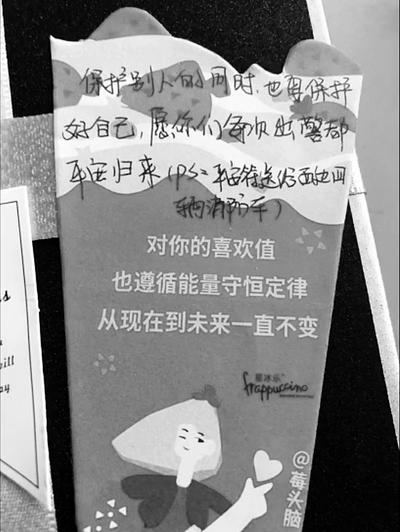 保护别人的同时,也要保护
好自己,愿你们每次出警都
平安归来(PS:平安符送给后面的四
辆消防车)
对你的喜欢值
也遵循能量守恒定律
从现在到未来一直不变
星冰乐
frappuccino
@莓头脑